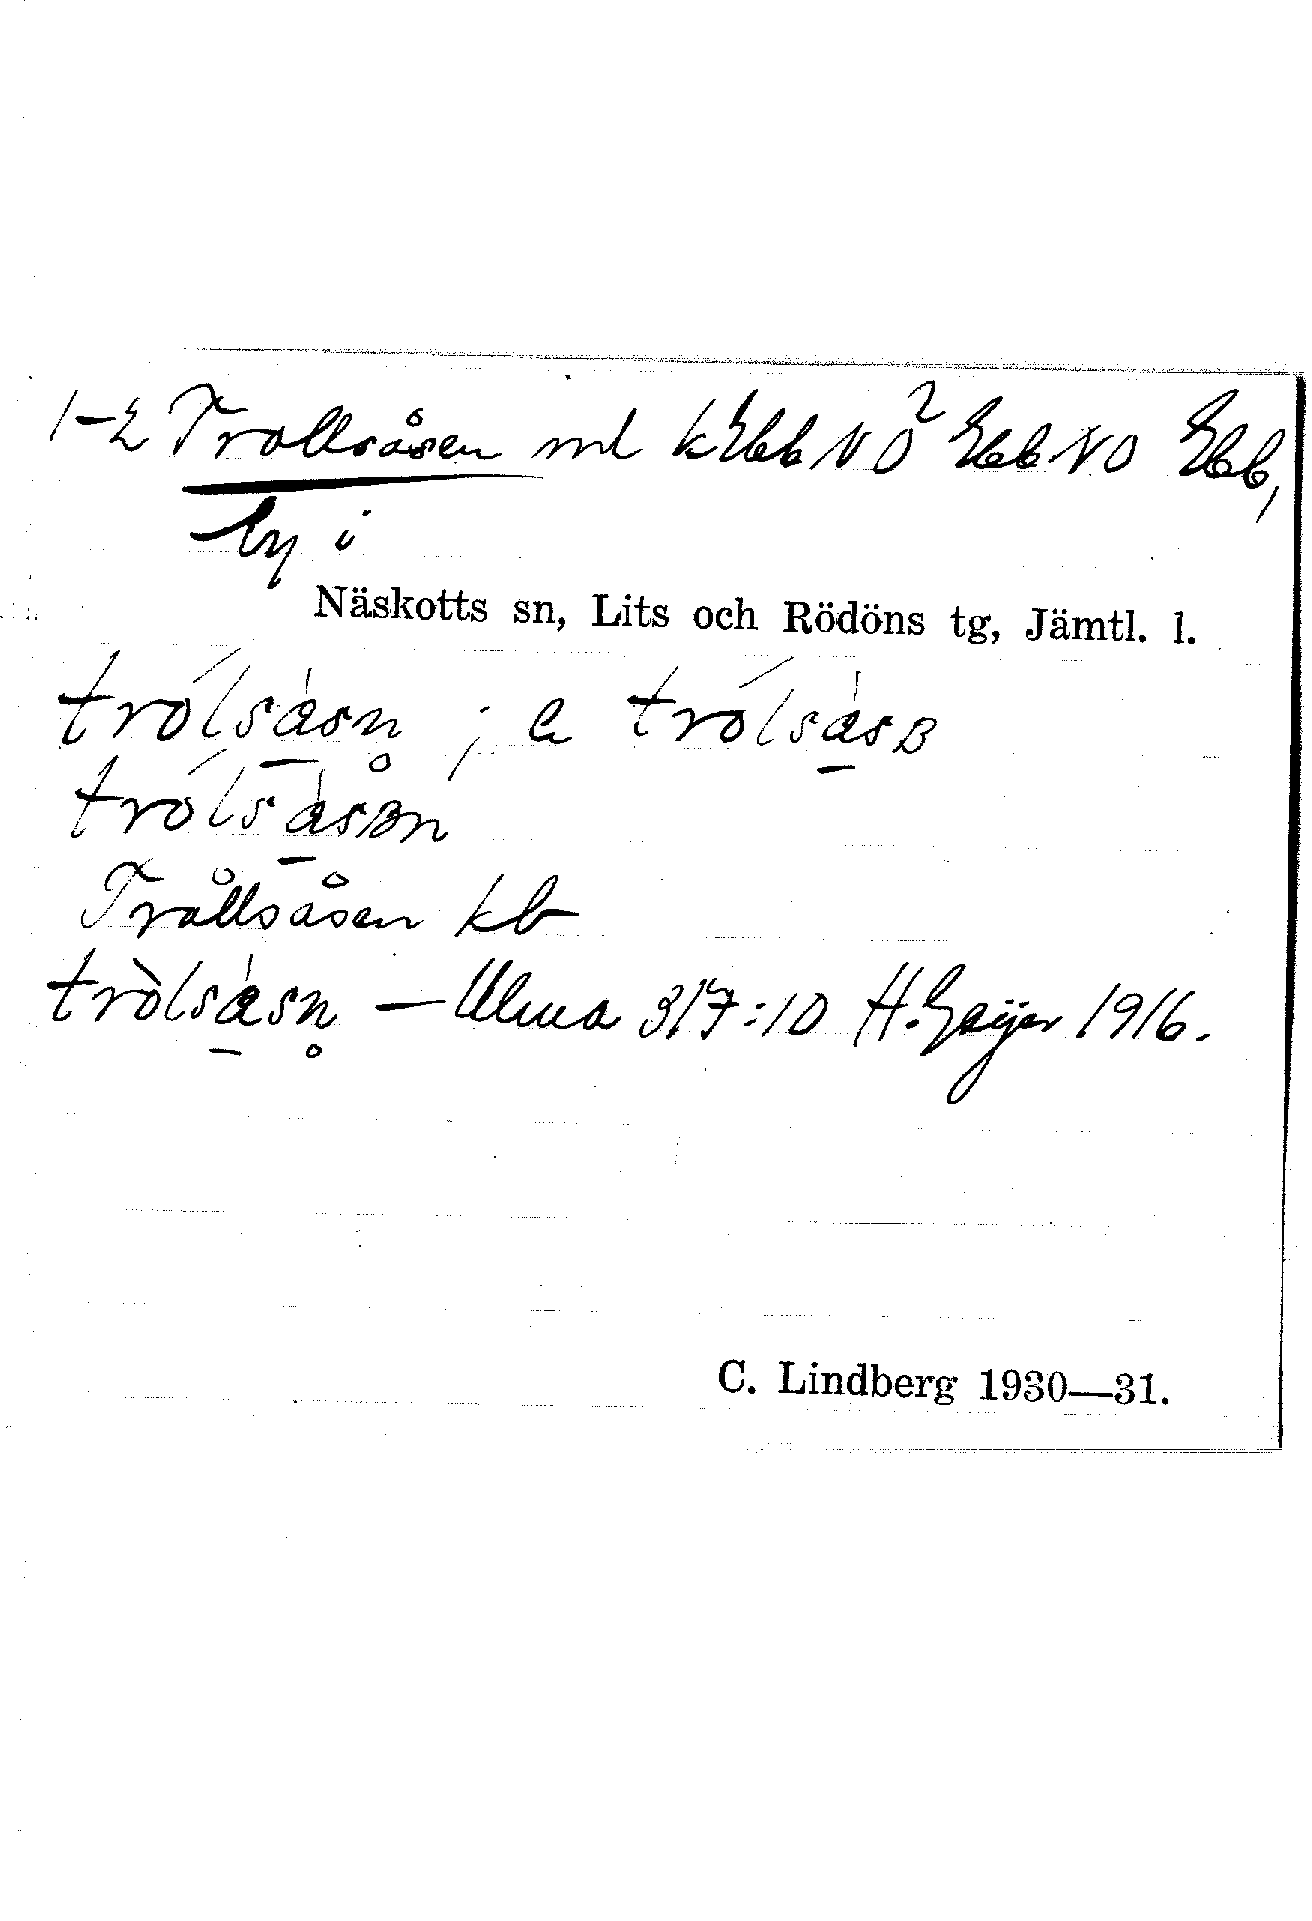 1-2 Trollsåsen ml k Ebb NO² Ebb NO Ebb,
by i
Näskotts sn, Lits och Rödöns tg, Jämtl. l.
trólsàsn̥ ; a trólsàsɞ
trólsàsɞn
Trållsåsen kb
tròlsàsn̥ — Ulma 317:10 H. Geijer 1916.
C. Lindberg 1930—31.